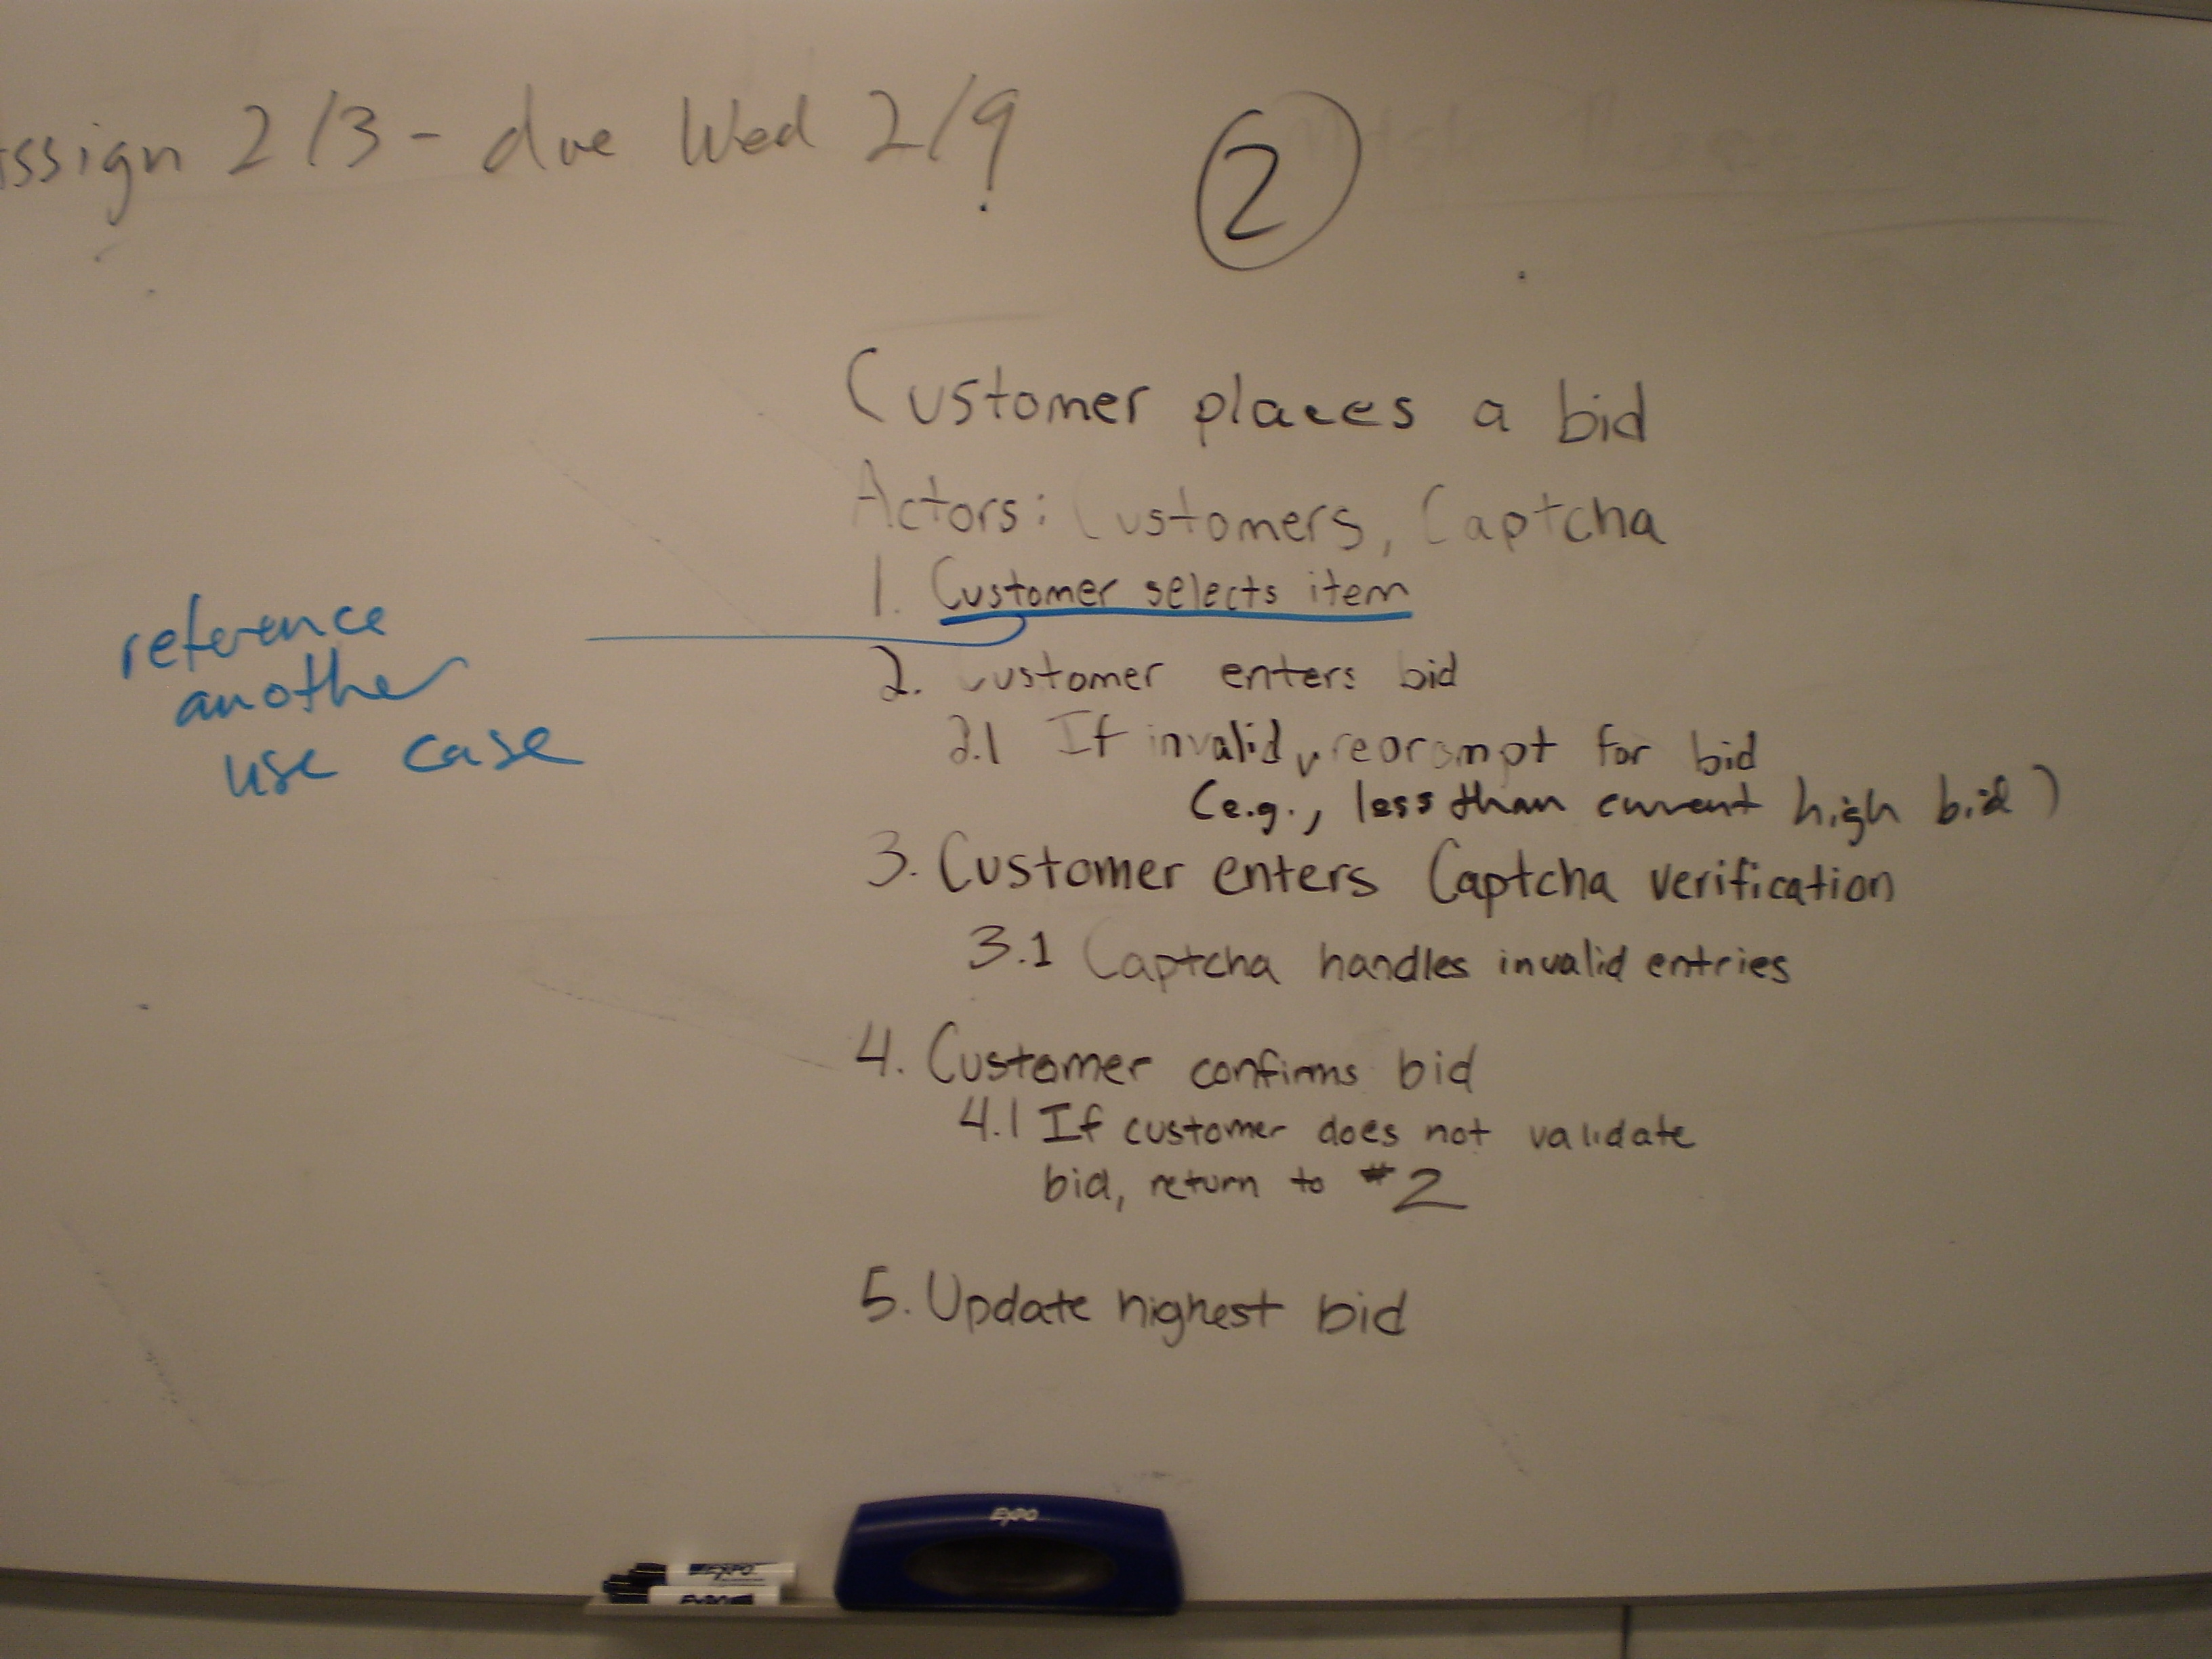 ssign 2/3 - due Wed 2/9
2
Customer places a bid
Actors: Customers, Captcha
1. Customer selects item
reference
another
use case
2. Customer enters bid
2.1 If invalid, reprompt for bid
(e.g., less than current high bid)
3. Customer enters Captcha verification
3.1 Captcha handles invalid entries
4. Customer confirms bid
4.1 If customer does not validate
bid, return to #2
5. Update highest bid
EXPO
EXPO
EXPO